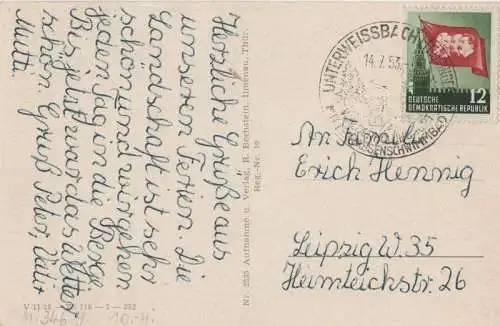 Herzliche Grüße aus
unseren Ferien. Die
Landschaft ist sehr
schön und wir gehen
jeden Tag in die Berge.
Bis jetzt war das Wetter
schön. Gruß Peter, Vati +
Mutti.
Nr. 2535 Aufnahme u. Verlag, R. Bechstein, Ilmenau, Thür.
Reg.-Nr. 10
UNTERWEISSBACH
14.7.53
DEUTSCHE
DEMOKRATISCHE REPUBLIK
12
An Familie
Erich Hennig
Leipzig W. 35
Heimteichstr. 26